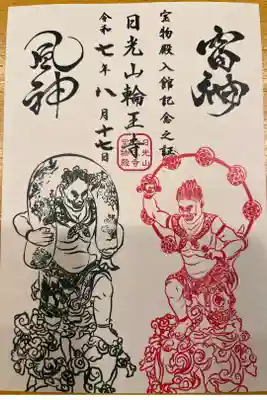 雷神
宝物殿入館記念之証
日光山輪王寺
令和七年八月十七日
風神
日光山